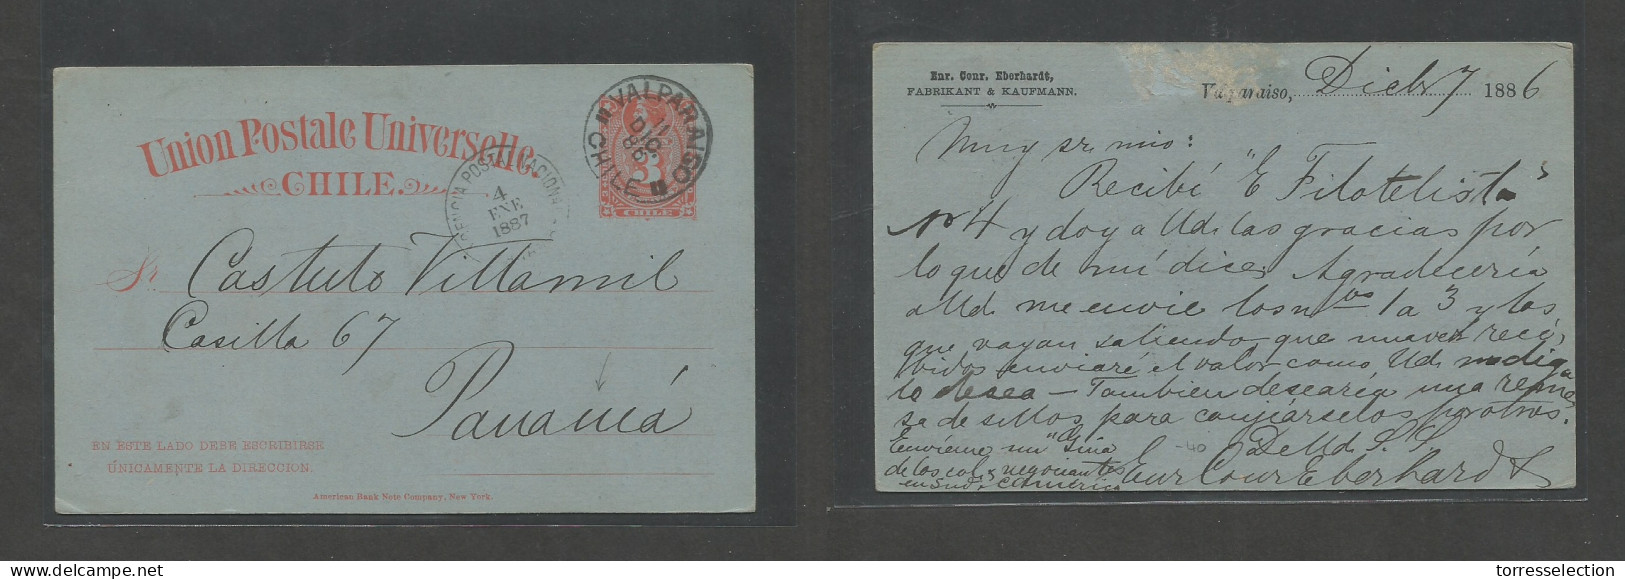 Union Postale Universelle.
CHILE.
VALPARAISO
11
DIC
86
CHILE
3
CHILE
4
ENE
1887
Sr. Castulo Villamil
Casilla 67
Panamá
EN ESTE LADO DEBE ESCRIBIRSE
ÚNICAMENTE LA DIRECCION.
American Bank Note Company, New York.
Enr. Conr. Eberhardt,
FABRIKANT & KAUFMANN.
Valparaiso, Dicbr 7 1886
Muy sr. mio:
Recibí "E Filotelista"
No 4 y doy a Ud. las gracias por
lo que de mí dice. Agradecería
a Ud. me envie los nos 1 a 3 y los
que vayan saliendo que una vez reci,
bidos enviaré el valor como Ud. me diga
lo desea — Tambien desearia una reme,
sa de sellos para canjárselos por otros.
Envíeme un "Guia De Ud. S. S.
de los col. s negociantes Enr Conr Eberhardt
en Sud. America
-40
torresselection